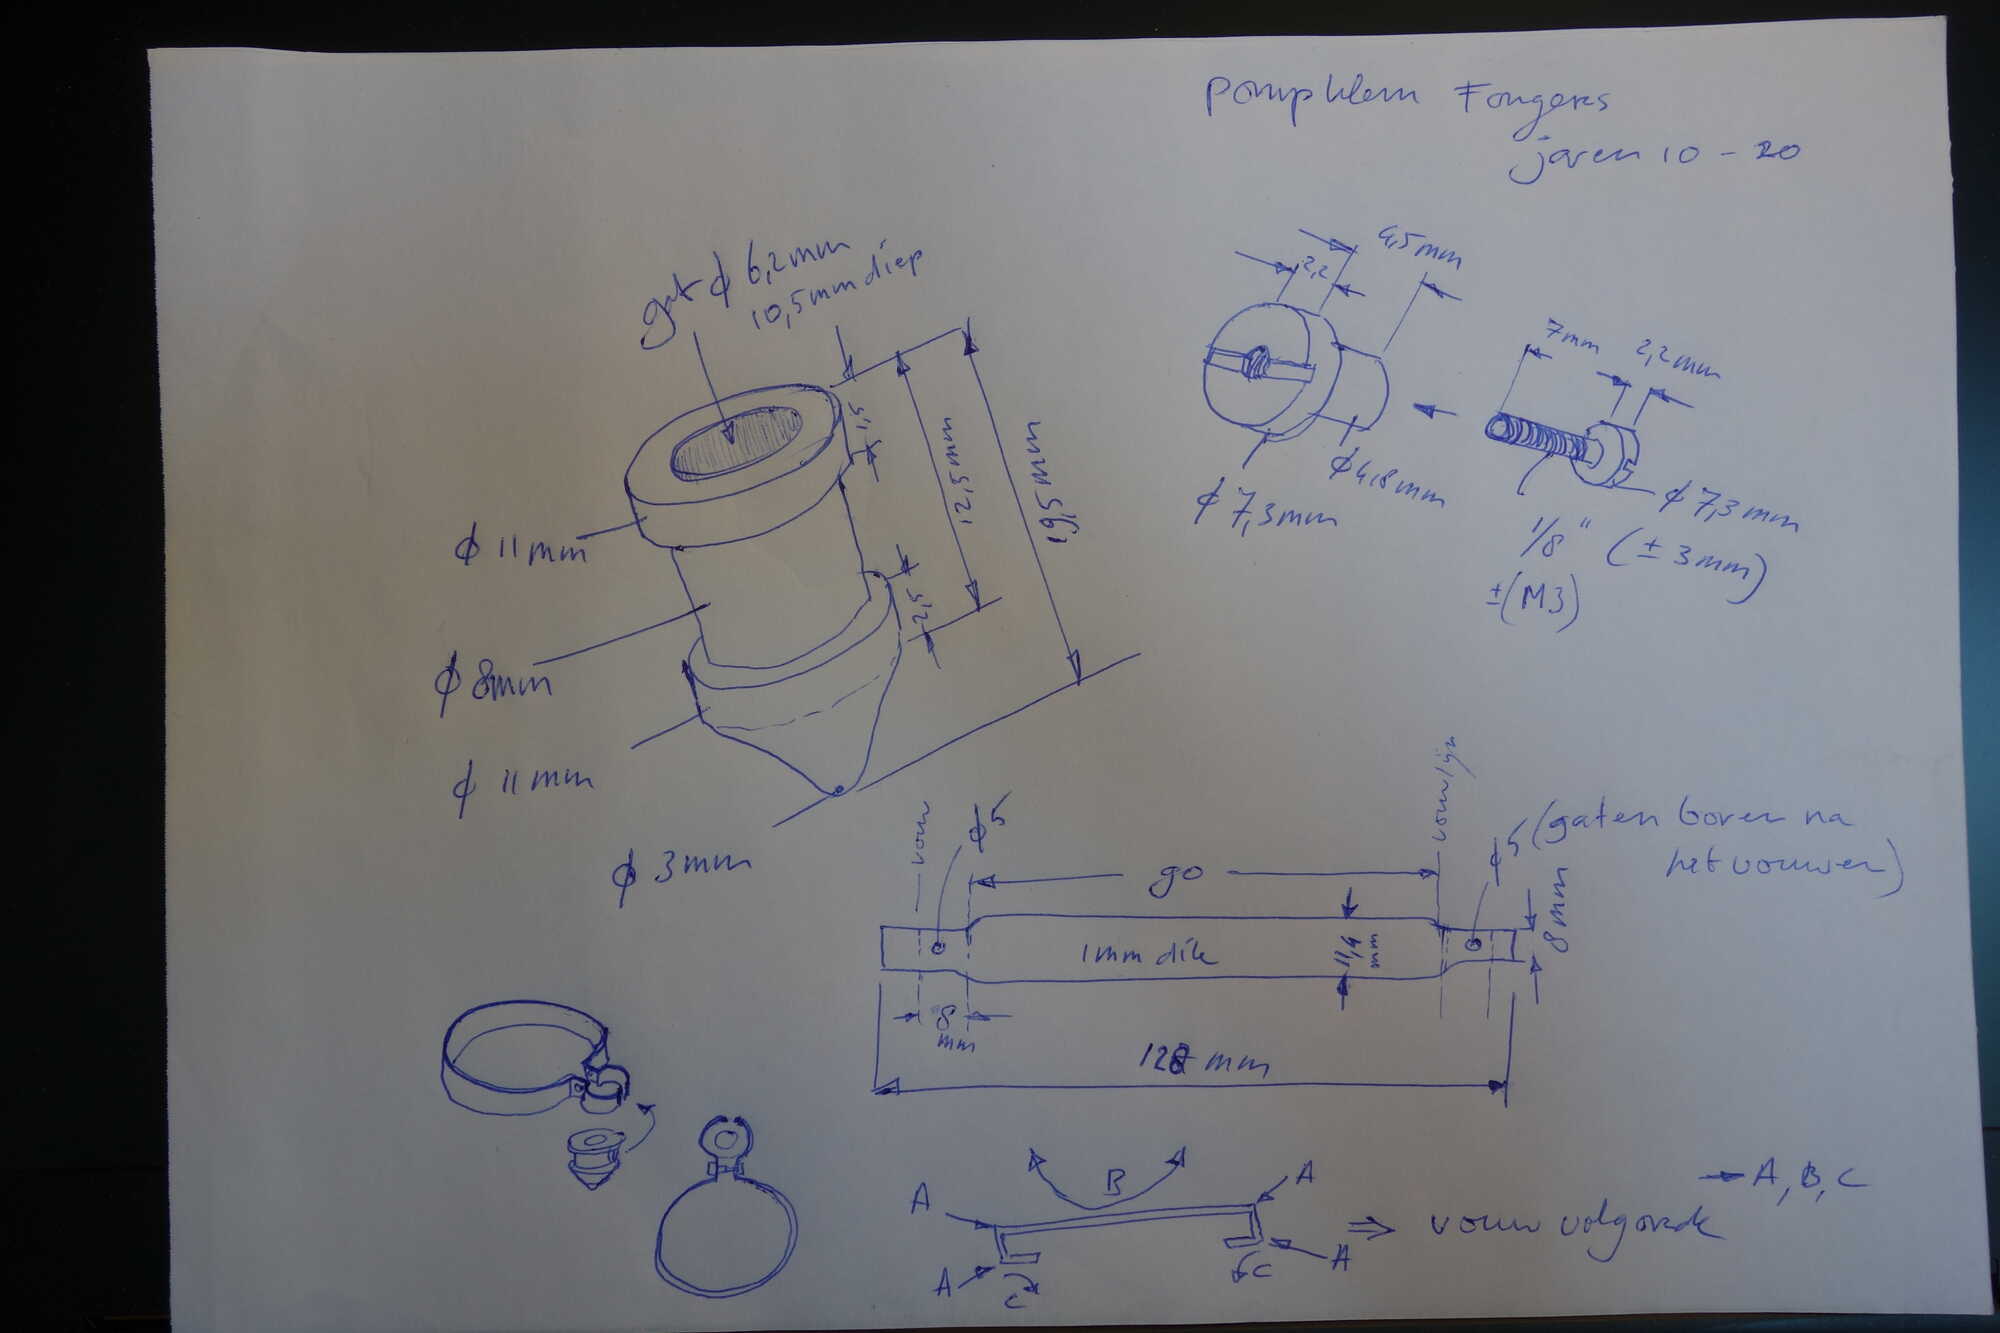 pompklem Fongers
jaren 10 - 20
gat ϕ 6,2mm
10,5mm diep
1,5
12,5mm
19,5mm
2,5
ϕ 11mm
ϕ 8mm
ϕ 11mm
ϕ 3mm
4,5mm
2,2
ϕ 7,3mm
ϕ4,8mm
7mm
2,2mm
ϕ 7,3mm
1/8" (± 3mm)
±(M3)
vouw
ϕ5
90
vouwlijn
ϕ5 (gaten boren na
het vouwen)
8mm
1mm dik
11,4
mm
8
mm
128 mm
A
B
A
A
C
C
A
⇒ vouw volgorde
→ A, B, C